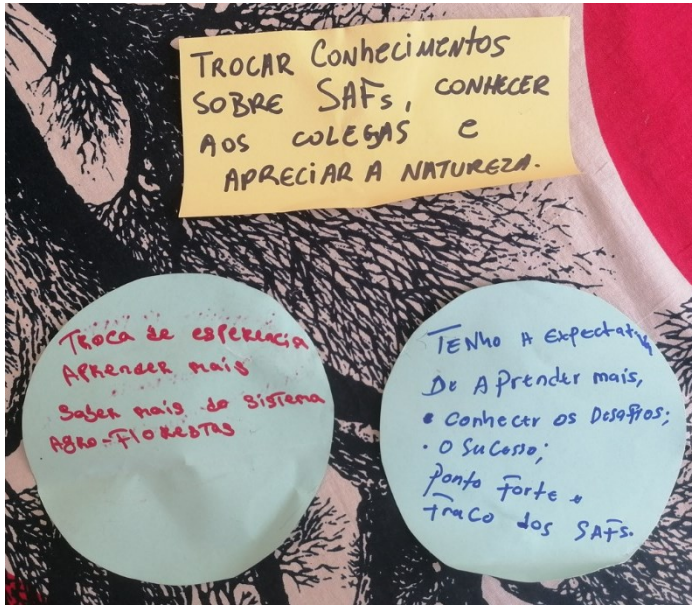 TROCAR CONHECIMENTOS
SOBRE SAFs, CONHECER
AOS COLEGAS e
APRECIAR A NATUREZA.
TROCA de esperencia
APRENDER mais
Saber mais do SISTEMA
AGRO-FLOREBTAS
TENHO A Expectativa
De APrender mais,
• conhecer os Desafios;
• O Sucesso;
Ponto Forte e
Fraco dos SAFs.